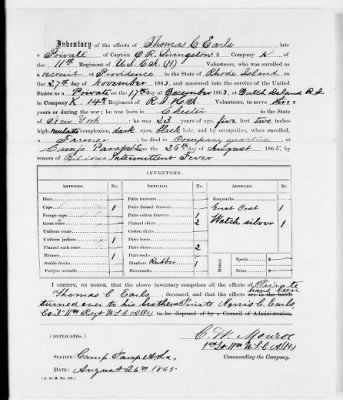 Inventory of the effects of Thomas C. Earls late
a Private of Captain C. R. Livingston's Company K of
the 11th Regiment of U.S.C.A. (H) Volunteers, who was enrolled as
a recruit at Providence in the State of Rhode Island on
the 27th day of November 1863, and mustered into the service of the United
States as a Private on the 17th day December 1863, at Dutch Island R.I.
in Company K, 14th Regiment of R.I.H.A. Volunteers, to serve three
years or during the war; he was born in Chester in the State
of New York; he was 23 years of age, five feet two inches
high, mulatto complexion, dark eyes, black hair, and by occupation, when enrolled,
a Farmer; he died in company quarters at
Camp Parapet La on the 25th day of August 1865, by
reason of Bilious Intermittent Fever
INVENTORY.
ARTICLES. No. ARTICLES. No. ARTICLES. No.
Hats
Caps 1
Forage caps
Great coats
Uniform coats
Uniform jackets 1
Flannel sack coats
Blouses 1
Stable frocks
Fatigue overalls
Pairs trowsers
Pairs flannel drawers 1
Pairs cotton drawers
Flannel shirts 2
Cotton shirts
Pairs boots
Pairs shoes 2
Pairs socks
Blankets Rubber 1
Knapsacks
Haversacks
Great Coat 1
Watch silver 1
Money. Specie $
Notes $
I CERTIFY, ON HONOR, that the above inventory comprises all the effects of Private
Thomas C. Earls, deceased, and that the effects have been
turned over to his brother Private Norris C. Earls
Co. K 11th Regt U.S.C.A. (H) to be disposed of by a Council of Administration.
C. W. Monroe
1st Lt. 11th U.S.C.A. (H)
Commanding the Company.
(DUPLICATES.)
STATION: Camp Parapet La.
DATE: August 26th 1865